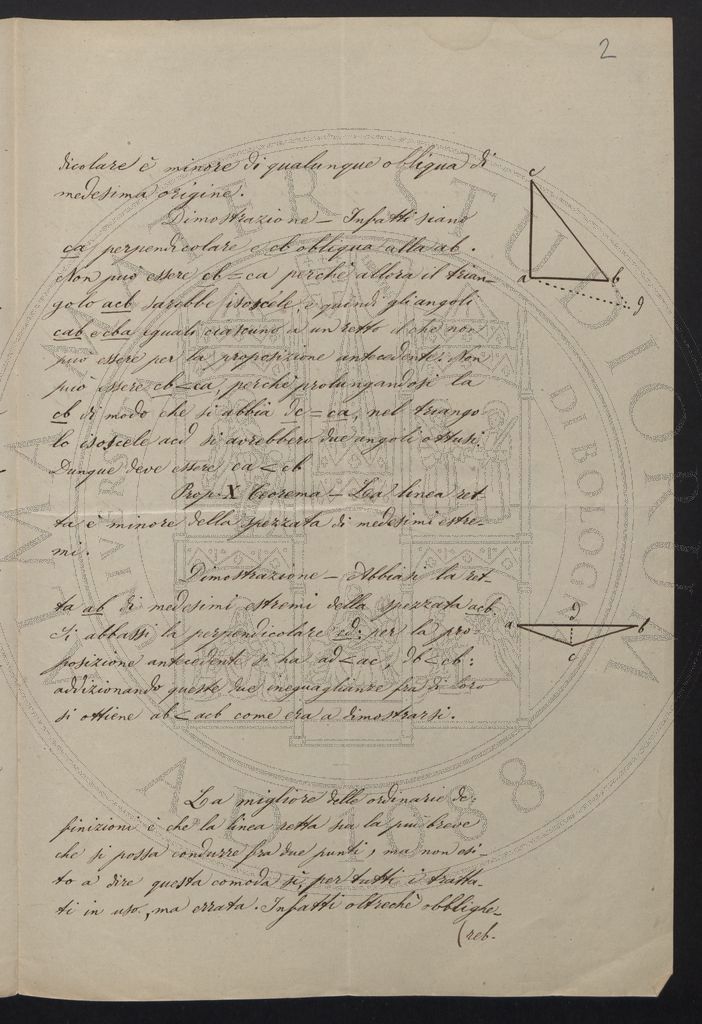 2
dicolare è minore di qualunque obliqua di
medesima origine.
Dimostrazione – Infatti siano
ca perpendicolare e cb obliqua alla ab.
Non può essere cb = ca perchè allora il trian–
golo acb sarebbe isoscele, e quindi gli angoli
cab e cba eguali ciascuno a un retto il che non
può essere per la proposizione antecedente. Non
può essere cb < ca, perchè prolungandosi la
cb di modo che si abbia dc = ca, nel triango–
lo isoscele acd si avrebbero due angoli ottusi.
Dunque deve essere ca < cb
Prop. X Teorema – La linea ret–
ta è minore della spezzata di medesimi estre–
mi.
Dimostrazione – Abbiasi la ret–
ta ab di medesimi estremi della spezzata acb.
Si abbassi la perpendicolare cd: per la pro–
posizione antecedente si ha ad < ac, db < cb:
addizionando queste due ineguaglianze fra di loro
si ottiene ab < acb come era a dimostrarsi.
La migliore delle ordinarie de–
finizioni è che la linea retta sia la più breve
che si possa condurre fra due punti, ma non esi–
to a dire questa comoda si, per tutti i tratta–
ti in uso, ma errata. Infatti oltrechè obblighe–
(reb.
c
a
b
d
a
d
b
c
ALMA MATER STUDIORUM
UNIVERSITÀ DI BOLOGNA
A.D. 1088